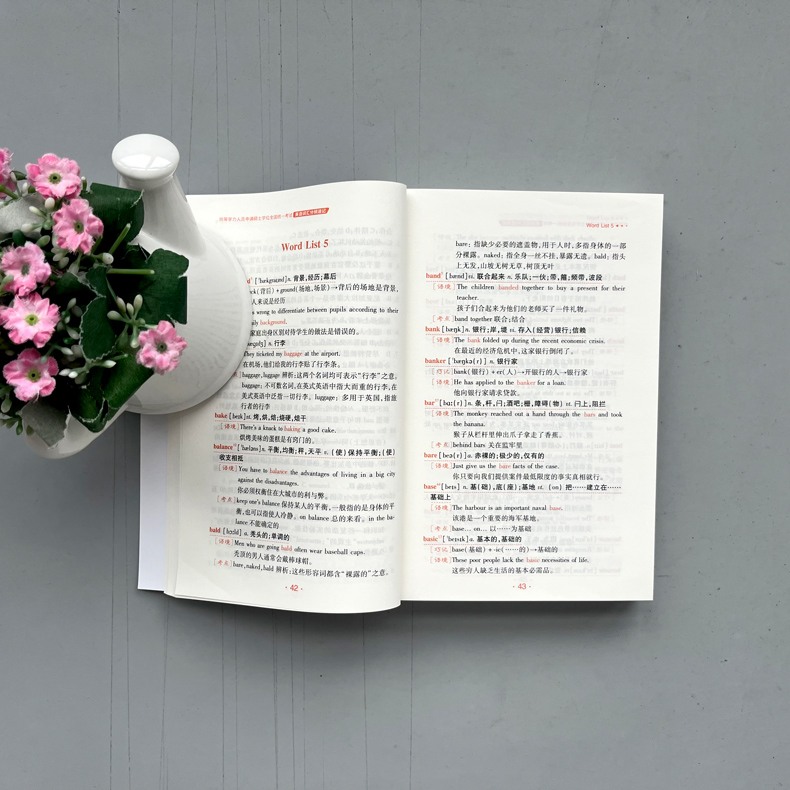 同等学力人员申请硕士学位全国统一考试
Word List 5
['bækgraund] n. 背景,经历;幕后
(背后)+ground(场地,场景)→背后的场地是背景,
人来说是经历
wrong to differentiate between pupils according to their
family background.
家庭出身区别对待学生的做法是错误的。
n. 行李
They ticketed my luggage at the airport.
在机场,他们给我的行李贴了行李条。
baggage,luggage 辨析:这两个名词均可表示“行李”之意。
baggage: 不可数名词,在英式英语中指大而重的行李,在
美式英语中泛指一切行李。luggage: 多用于英国,指旅
行者的行李
bake [beik] vt. 烤,烘,焙;烧硬,焙干
[语境] There's a knack to baking a good cake.
烘烤美味的蛋糕是有窍门的。
balance ['bæləns] n. 平衡,均衡;秤,天平 v. (使)保持平衡;(使)
收支相抵
[语境] You have to balance the advantages of living in a big city
against the disadvantages.
你必须权衡住在大城市的利与弊。
[考点] keep one's balance 保持某人的平衡,一般指的是身体的平
衡,也可以指使人冷静。on balance 总的来看。in the ba-
lance 不能确定的
bald [bɔ:ld] a. 秃头的;单调的
[语境] Men who are going bald often wear baseball caps.
秃顶的男人通常会戴棒球帽。
[考点] bare,naked,bald 辨析:这些形容词都含“裸露的”之意。
· 42 ·
Word List 5
bare: 指缺少必要的遮盖物,用于人时,多指身体的一部
分裸露。naked: 指全身一丝不挂,暴露无遗。bald: 指头
上无发,山坡无树无草,树顶无叶
band [bænd] vi. 联合起来 n. 乐队;一伙;带,箍;频带,波段
[语境] The children banded together to buy a present for their
teacher.
孩子们合起来为他们的老师买了一件礼物。
[考点] band together 联合;结合
bank [bæŋk] n. 银行;岸,堤 vi. 存入(经营)银行;信赖
[语境] The bank folded up during the recent economic crisis.
在最近的经济危机中,这家银行倒闭了。
banker ['bæŋkə(r)] n. 银行家
[巧记] bank(银行)+er(人)→开银行的人→银行家
[语境] He has applied to the banker for a loan.
他向银行家请求贷款。
bar [bɑ:(r)] n. 条,杆,闩;酒吧;栅,障碍(物) vt. 闩上,阻拦
[语境] The monkey reached out a hand through the bars and took
the banana.
猴子从栏杆里伸出爪子拿走了香蕉。
[考点] behind bars 关在监牢里
bare [beə(r)] a. 赤裸的;极少的,仅有的
[语境] Just give us the bare facts of the case.
你只要向我们提供案件最低限度的事实真相就行。
base [beis] n. 基(础),底(座);基地 vt. (on) 把……建立在……
基础上
[语境] The harbour is an important naval base.
该港是一个重要的海军基地。
[考点] base... on... 以……为基础
basic ['beisik] a. 基本的,基础的
[巧记] base(基础)+-ic(……的)→基础的
[语境] These poor people lack the basic necessities of life.
这些穷人缺乏生活的基本必需品。
· 43 ·